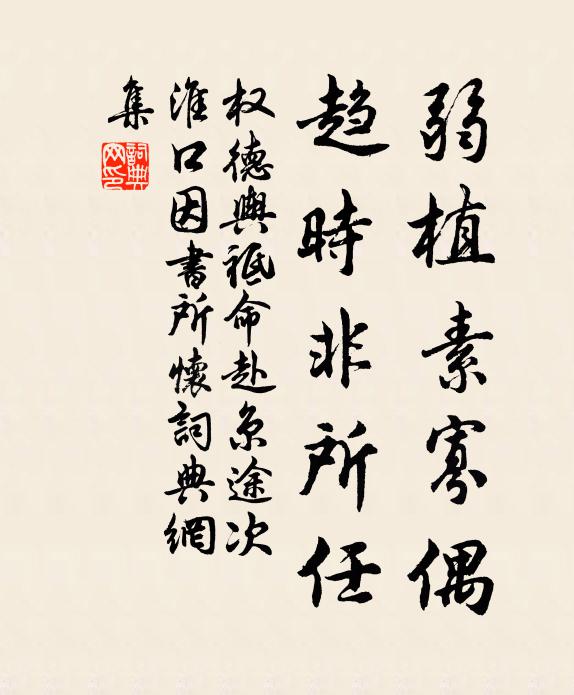 弱植素寡偶
趋時非所任
权德舆祗命赴京途次
淮口因書所懷詞典網
集
詞典
网印